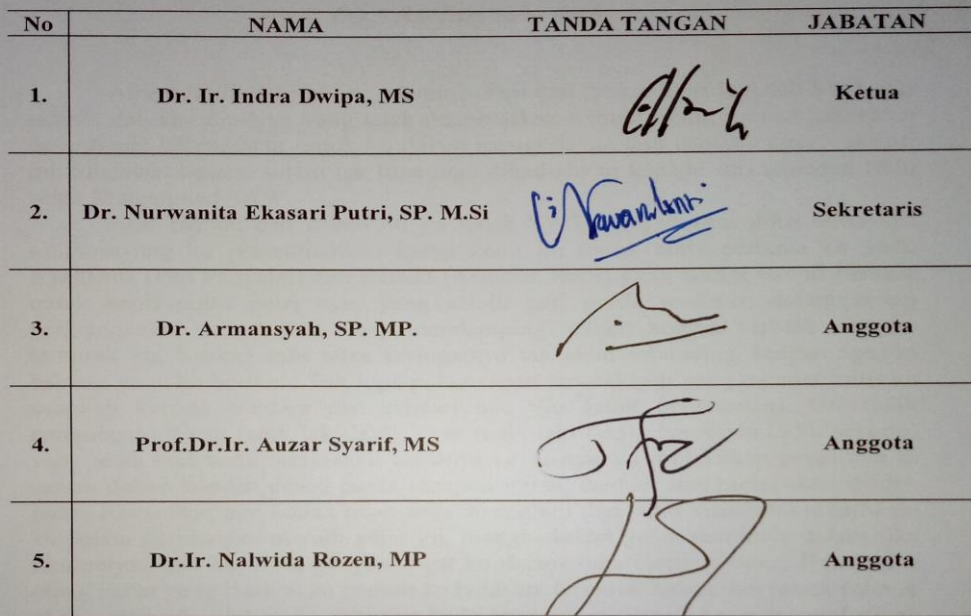 No NAMA TANDA TANGAN JABATAN
1. Dr. Ir. Indra Dwipa, MS Ketua
2. Dr. Nurwanita Ekasari Putri, SP. M.Si Sekretaris
3. Dr. Armansyah, SP. MP. Anggota
4. Prof.Dr.Ir. Auzar Syarif, MS Anggota
5. Dr.Ir. Nalwida Rozen, MP Anggota